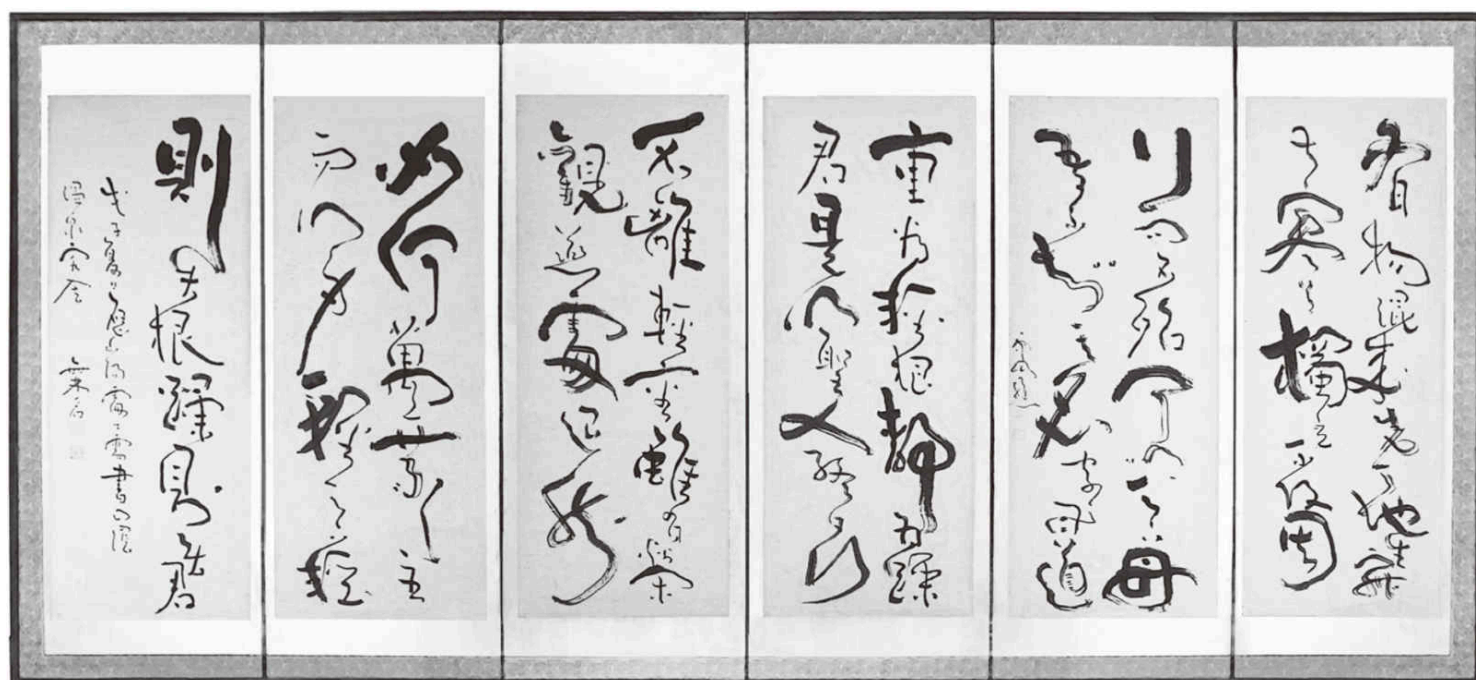 有物混成先天地生寂
兮寥兮獨立不改周
行而不殆可以為天下母
吾不知其名字曰道
重為輕根靜為躁
君是以聖人終日行
不離輜重雖有榮
觀燕處超然
如何萬乘之主
而以身輕天下輕
則失根躁則失君